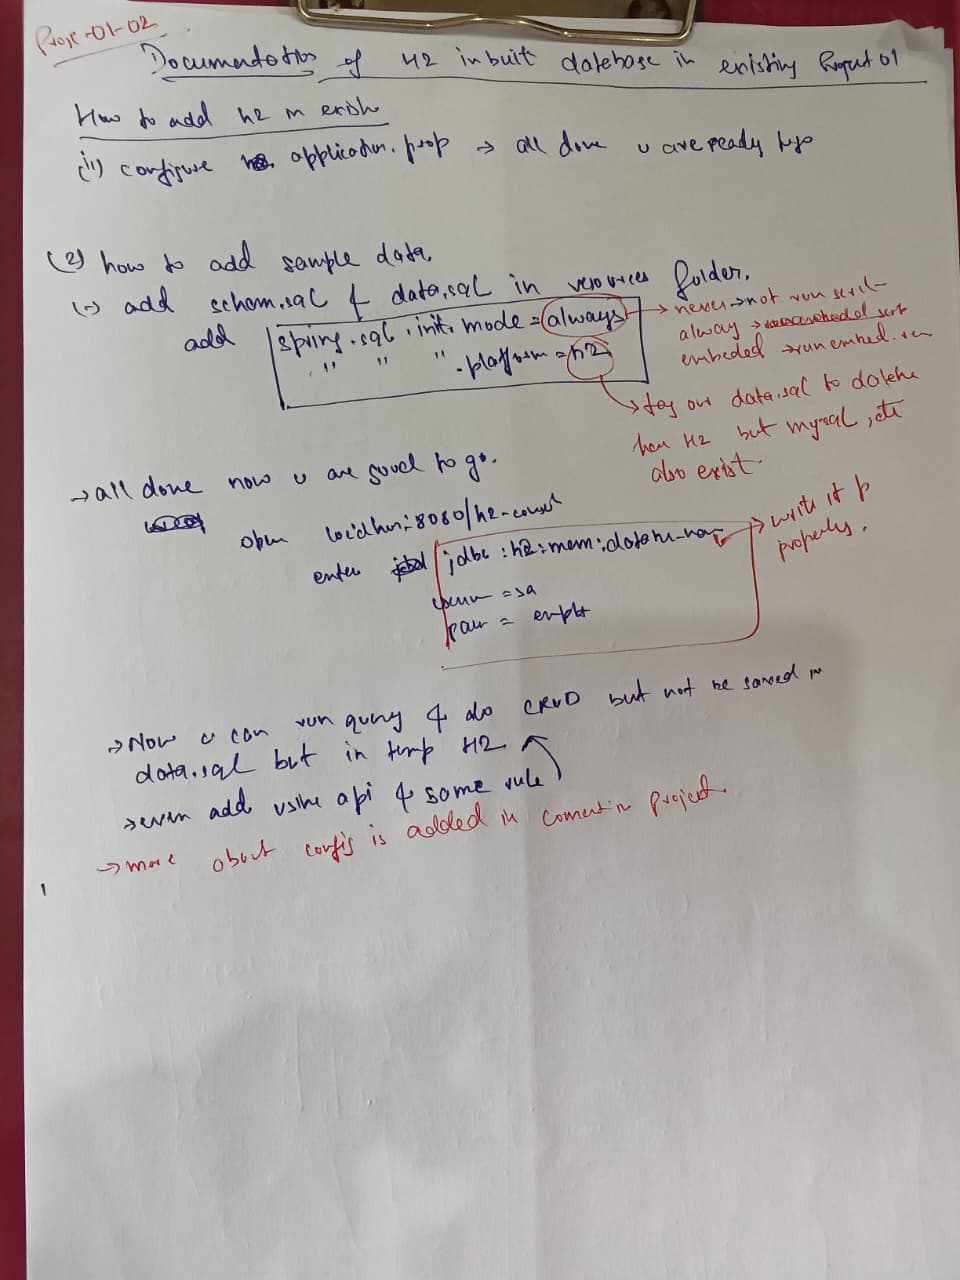 Proje-01-02
Documentation of H2 inbuit datebase in existing Project 01
How to add h2 in
(1) configure application.prop → all done u are ready
(2) how to add sample data.
(→) add schem.sql & data.sql in resources folder.
add spring.sql.init.mode = always
" " " .platform = h2
→ never → not run
alway →
embeded → run embed.
→ our data.sql to
H2 but mysql, etc
also exist.
→ all done now u are good to go.
open localhos:8080/h2-consol
enter jdbc:h2:mem:
= sa
=
→ with it
properly.
→ Now u can run query & do CRUD but not be saved in
data.sql but in temp H2
→ even add using api & some rule
→ more about config is added in coment in project.